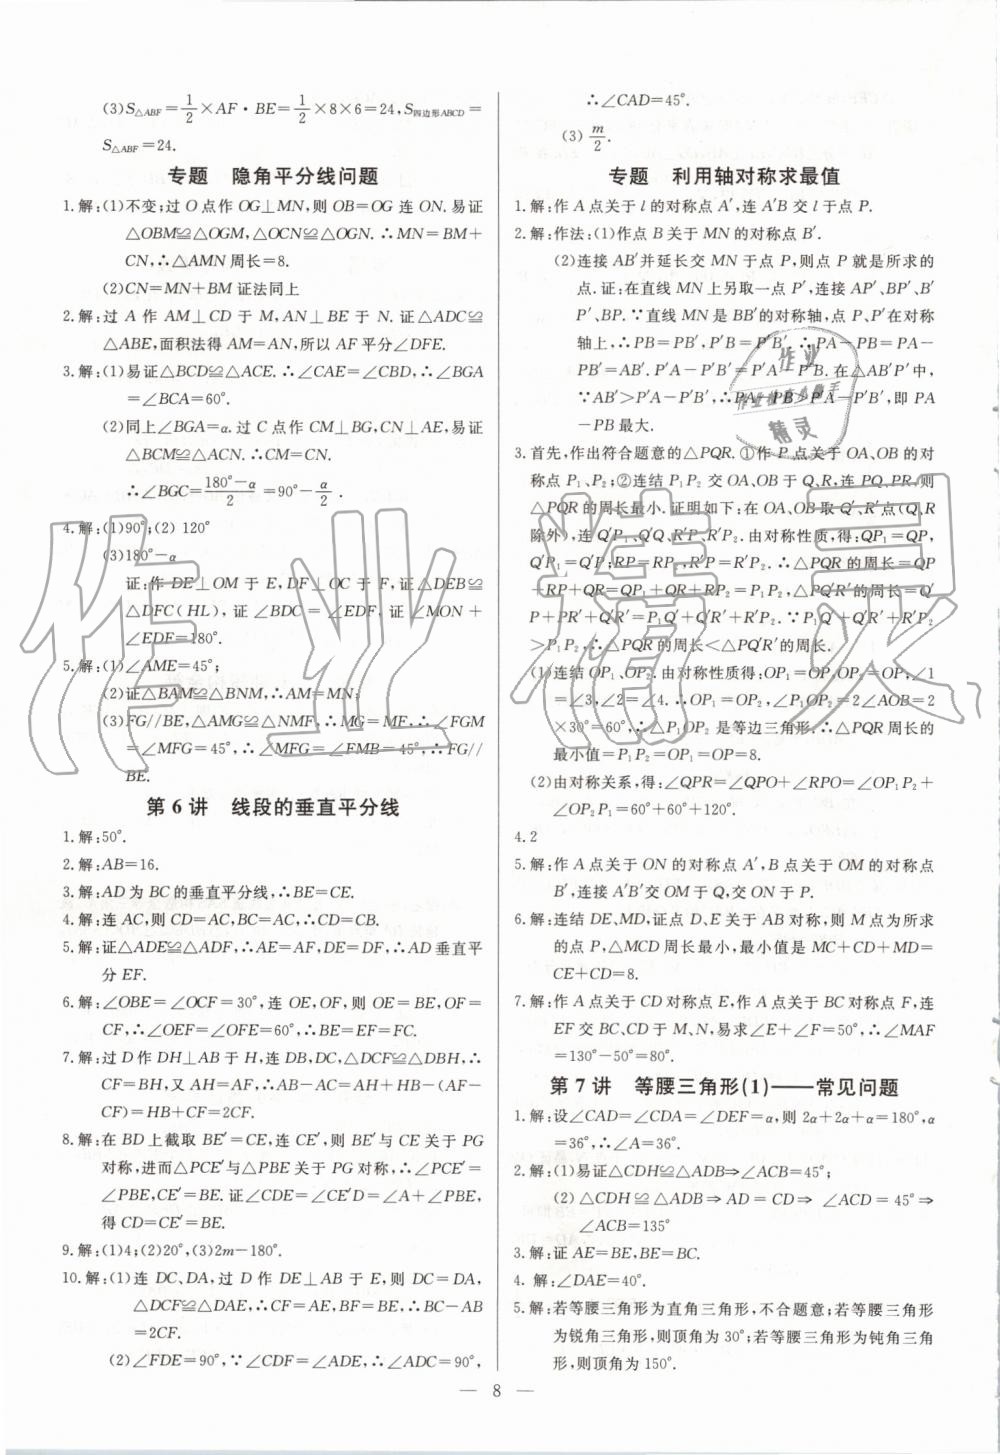 (3)S△ABF=1/2×AF·BE=1/2×8×6=24,S四边形ABCD=
S△ABF=24.
专题 隐角平分线问题
1.解:(1)不变;过O点作OG⊥MN,则OB=OG连ON.易证
△OBM≌△OGM,△OCN≌△OGN.∴MN=BM+
CN,∴△AMN周长=8.
(2)CN=MN+BM证法同上
2.解:过A作AM⊥CD于M,AN⊥BE于N.证△ADC≌
△ABE,面积法得AM=AN,所以AF平分∠DFE.
3.解:(1)易证△BCD≌△ACE.∴∠CAE=∠CBD,∴∠BGA
=∠BCA=60°.
(2)同上∠BGA=α.过C点作CM⊥BG,CN⊥AE,易证
△BCM≌△ACN.∴CM=CN.
∴∠BGC=(180°-α)/2=90°-α/2.
4.解:(1)90°;(2)120°
(3)180°-α
证:作DE⊥OM于E,DF⊥OC于F,证△DEB≌
△DFC(HL),证∠BDC=∠EDF,证∠MON+
∠EDF=180°.
5.解:(1)∠AME=45°;
(2)证△BAM≌△BNM,∴AM=MN;
(3)FG//BE,△AMG≌△NMF,∴MG=MF,∴∠FGM
=∠MFG=45°,∴∠MFG=∠FMB=45°,∴FG//
BE.
第6讲 线段的垂直平分线
1.解:50°.
2.解:AB=16.
3.解:AD为BC的垂直平分线,∴BE=CE.
4.解:连AC,则CD=AC,BC=AC,∴CD=CB.
5.解:证△ADE≌△ADF,∴AE=AF,DE=DF,∴AD垂直平
分EF.
6.解:∠OBE=∠OCF=30°,连OE,OF,则OE=BE,OF=
CF,∴∠OEF=∠OFE=60°,∴BE=EF=FC.
7.解:过D作DH⊥AB于H,连DB,DC,△DCF≌△DBH,∴
CF=BH,又AH=AF,∴AB-AC=AH+BH-(AF-
CF)=HB+CF=2CF.
8.解:在BD上截取BE′=CE,连CE′,则BE′与CE关于PG
对称,进而△PCE′与△PBE关于PG对称,∴∠PCE′=
∠PBE,CE′=BE.证∠CDE=∠CE′D=∠A+∠PBE,
得CD=CE′=BE.
9.解:(1)4;(2)20°,(3)2m-180°.
10.解:(1)连DC、DA,过D作DE⊥AB于E,则DC=DA,
△DCF≌△DAE,∴CF=AE,BF=BE,∴BC-AB
=2CF.
(2)∠FDE=90°,∵∠CDF=∠ADE,∴∠ADC=90°,
∴∠CAD=45°.
(3)m/2.
专题 利用轴对称求最值
1.解:作A点关于l的对称点A′,连A′B交l于点P.
2.解:作法:(1)作点B关于MN的对称点B′.
(2)连接AB′并延长交MN于点P,则点P就是所求的
点.证:在直线MN上另取一点P′,连接AP′、BP′、B′
P′、BP.∵直线MN是BB′的对称轴,点P、P′在对称
轴上,∴PB=PB′,P′B=P′B′,∴PA-PB=PA-
PB′=AB′.P′A-P′B′=P′A-P′B.在△AB′P′中,
∵AB′>P′A-P′B′,∴PA-PB>P′A-P′B′,即PA
-PB最大.
3.首先,作出符合题意的△PQR.①作P点关于OA、OB的对
称点P₁、P₂;②连结P₁P₂交OA、OB于Q、R,连PQ、PR,则
△PQR的周长最小.证明如下:在OA、OB取Q′、R′点(Q、R
除外),连Q′P₁、Q′Q、R′P、R′P₂.由对称性质,得:QP₁=QP,
Q′P₁=Q′P;RP=RP₂,R′P=R′P₂.∴△PQR的周长=QP
+RP+QR=QP₁+QR+RP₂=P₁P₂,△PQ′R′的周长=Q′P
+R′P+Q′R′=P₁Q′+Q′R′+R′P₂.∵P₁Q′+Q′R′+R′P₂
>P₁P₂,∴△PQR的周长<△PQ′R′的周长.
(1)连结OP₁、OP₂.由对称性质得:OP₁=OP,OP₂=OP,∠1
=∠3,∠2=∠4.∴OP₁=OP₂,∠P₁OP₂=2∠AOB=2
×30°=60°,∴△P₁OP₂是等边三角形.∴△PQR周长的
最小值=P₁P₂=OP₁=OP=8.
(2)由对称关系,得:∠QPR=∠QPO+∠RPO=∠OP₁P₂+
∠OP₂P₁=60°+60°=120°.
4.2
5.解:作A点关于ON的对称点A′,B点关于OM的对称点
B′,连接A′B′交OM于Q,交ON于P.
6.解:连结DE、MD,证点D、E关于AB对称,则M点为所求
的点P,△MCD周长最小,最小值是MC+CD+MD=
CE+CD=8.
7.解:作A点关于CD对称点E,作A点关于BC对称点F,连
EF交BC、CD于M、N,易求∠E+∠F=50°,∴∠MAF
=130°-50°=80°.
第7讲 等腰三角形(1)——常见问题
1.解:设∠CAD=∠CDA=∠DEF=α,则2α+2α+α=180°,α
=36°,∴∠A=36°.
2.解:(1)易证△CDH≌△ADB⇒∠ACB=45°;
(2)△CDH≌△ADB⇒AD=CD⇒∠ACD=45°⇒
∠ACB=135°
3.解:证AE=BE,BE=BC.
4.解:∠DAE=40°.
5.解:若等腰三角形为直角三角形,不合题意;若等腰三角形
为锐角三角形,则顶角为30°;若等腰三角形为钝角三角
形,则顶角为150°.
— 8 —
作业精灵
作业
精灵